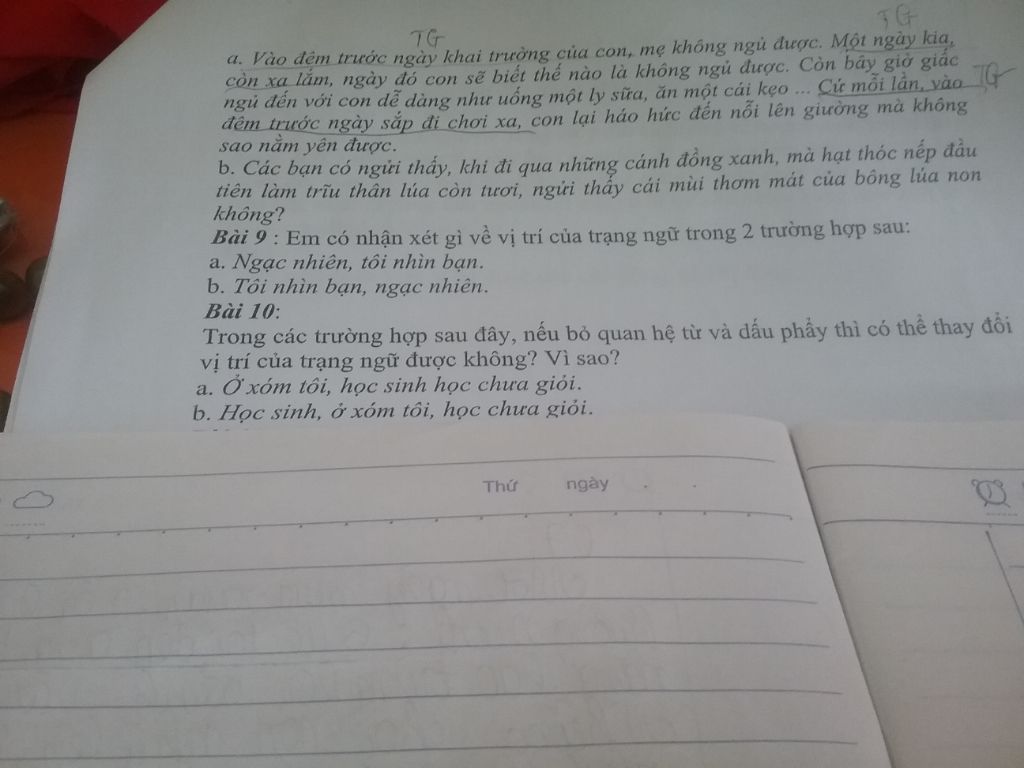 TG
TG
a. Vào đêm trước ngày khai trường của con, mẹ không ngủ được. Một ngày kia,
còn xa lắm, ngày đó con sẽ biết thế nào là không ngủ được. Còn bây giờ giấc
ngủ đến với con dễ dàng như uống một ly sữa, ăn một cái kẹo ... Cứ mỗi lần, vào TG
đêm trước ngày sắp đi chơi xa, con lại háo hức đến nỗi lên giường mà không
sao nằm yên được.
b. Các bạn có ngửi thấy, khi đi qua những cánh đồng xanh, mà hạt thóc nếp đầu
tiên làm trĩu thân lúa còn tươi, ngửi thấy cái mùi thơm mát của bông lúa non
không?
Bài 9 : Em có nhận xét gì về vị trí của trạng ngữ trong 2 trường hợp sau:
a. Ngạc nhiên, tôi nhìn bạn.
b. Tôi nhìn bạn, ngạc nhiên.
Bài 10:
Trong các trường hợp sau đây, nếu bỏ quan hệ từ và dấu phẩy thì có thể thay đổi
vị trí của trạng ngữ được không? Vì sao?
a. Ở xóm tôi, học sinh học chưa giỏi.
b. Học sinh, ở xóm tôi, học chưa giỏi.
Thứ ngày